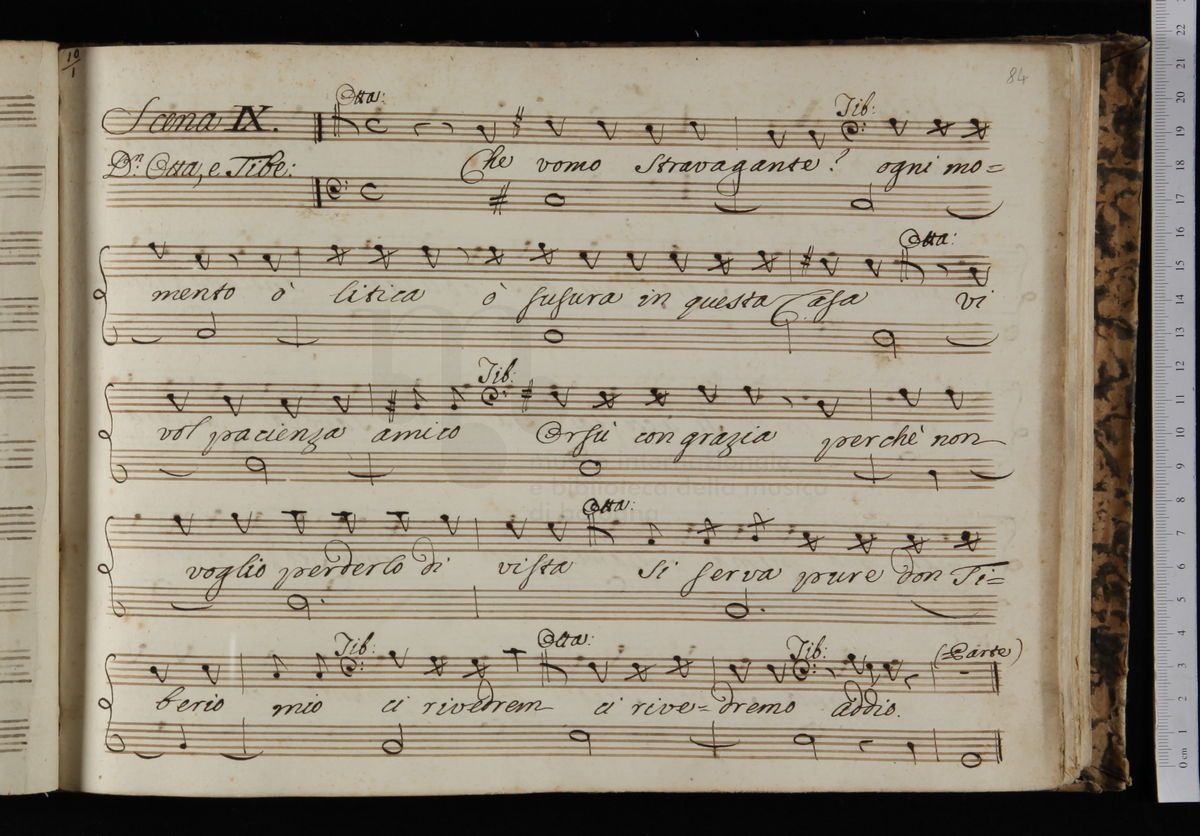 10
1
84
Otta:
Tib:
Scena IX.
Dn. Otta, e Tibe:
Che vomo Stravagante? ogni mo=
Otta:
mento ò litica ò susura in questa Casa vi
Tib:
vol pacienza amico Orsù con grazia perchè non
Otta:
voglio perderlo di vista Si serva pure don Ti=
Tib: Otta: Tib: (Parte)
berio mio ci rivedrem ci rive=dremo addio.
e biblioteca della musica
0 cm 1 2 3 4 5 6 7 8 9 10 11 12 13 14 15 16 17 18 19 20 21 22